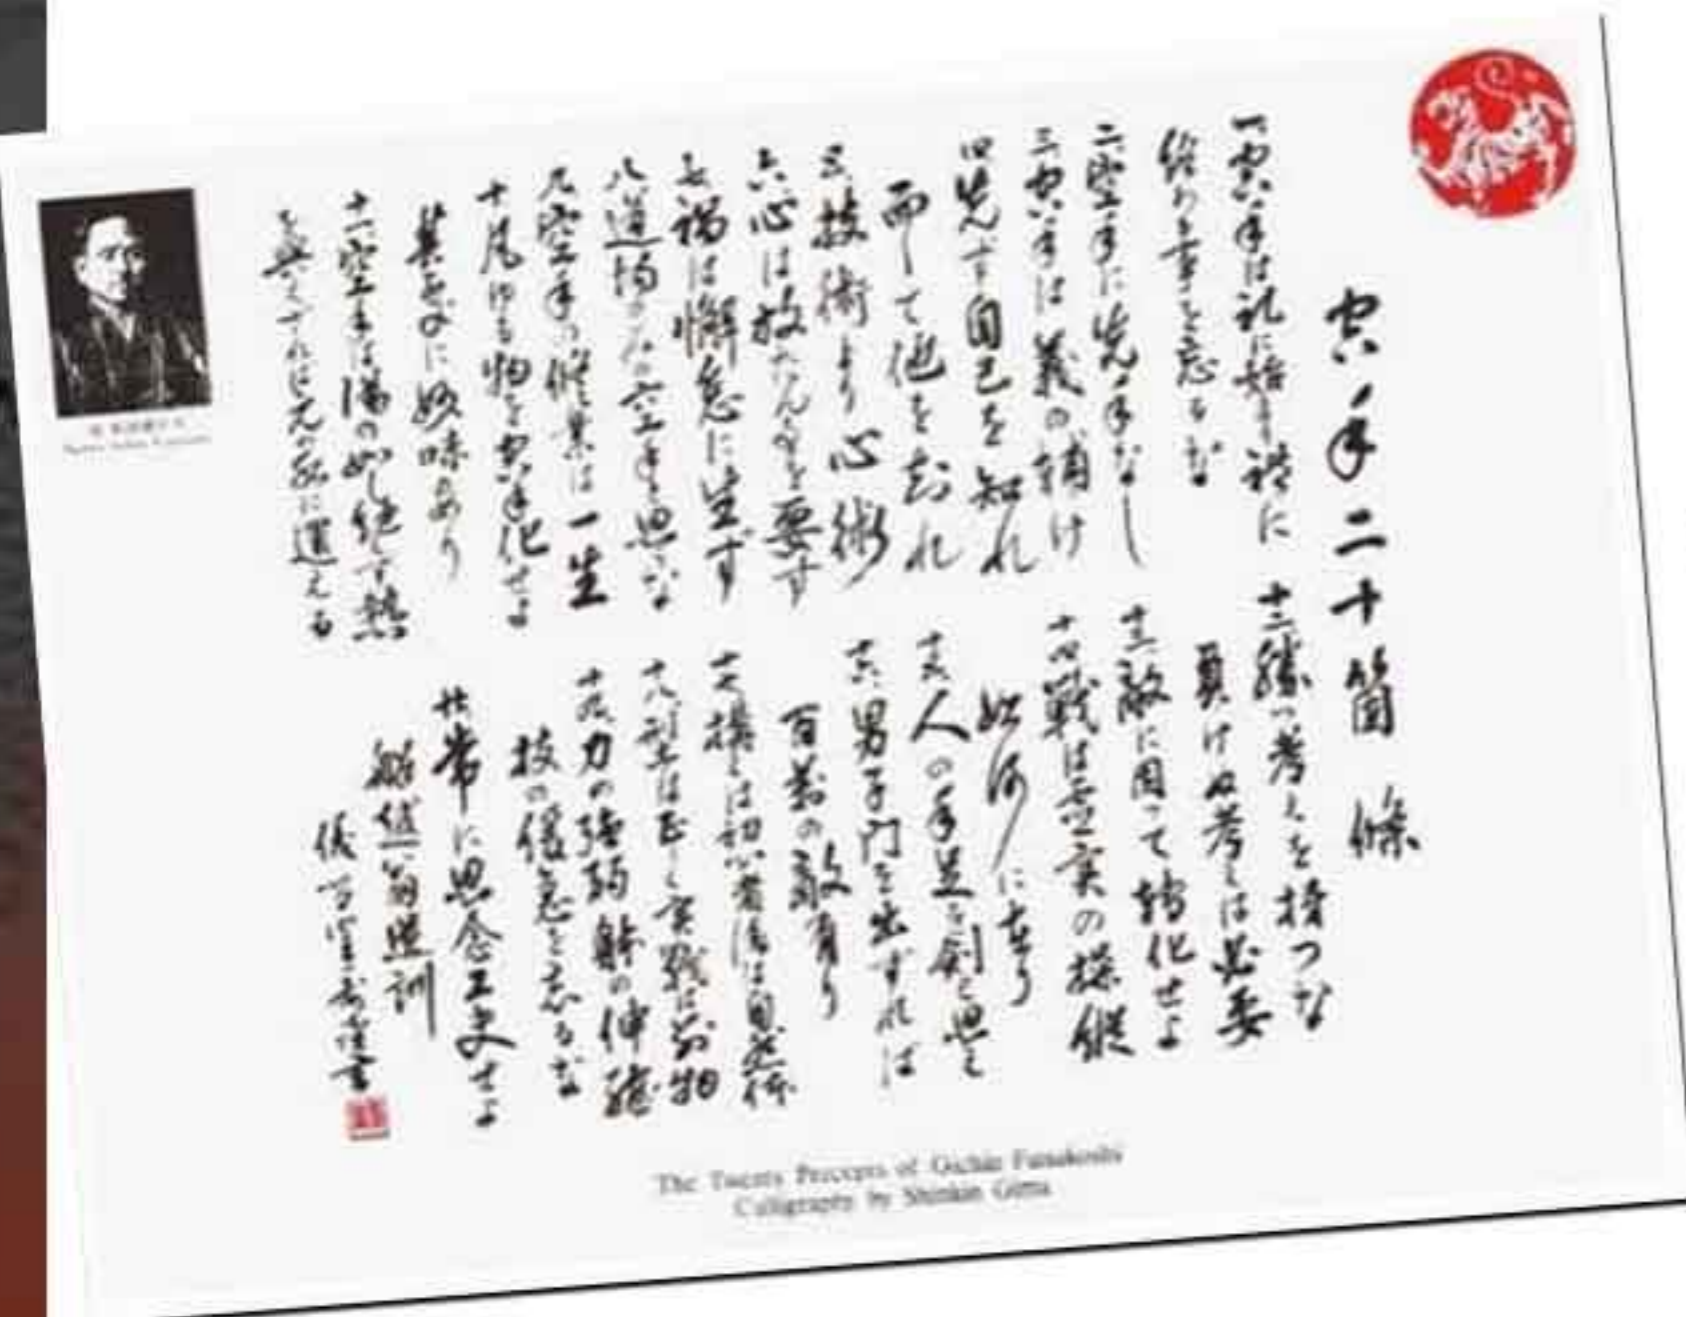 空手二十箇條
一、空手は礼に始り礼に
終わる事を忘るな
二、空手に先手なし
三、空手は義の補け
四、先づ自己を知れ
而して他を知れ
五、技術より心術
六、心は放たん事を要す
七、禍は懈怠に生ず
八、道場のみの空手と思ふな
九、空手の修業は一生
十、凡ゆる物を空手化せよ
其処に妙味あり
十一、空手は湯の如し絶えず熱
を與えざれば元の水に還える
十二、勝つ考えを持つな
負けぬ考えは必要
十三、敵に因って轉化せよ
十四、戦は虚実の操縦
如何に在り
十五、人の手足を剣と思え
十六、男子門を出ずれば
百万の敵有り
十七、構えは初心者後は自然体
十八、型は正しく実戦は別物
十九、力の強弱体の伸縮
技の緩急を忘るな
廿、常に思念工夫せよ
船越義珍翁遺訓
The Twenty Precepts of Gichin Funakoshi
Calligraphy by Shinkin Gima